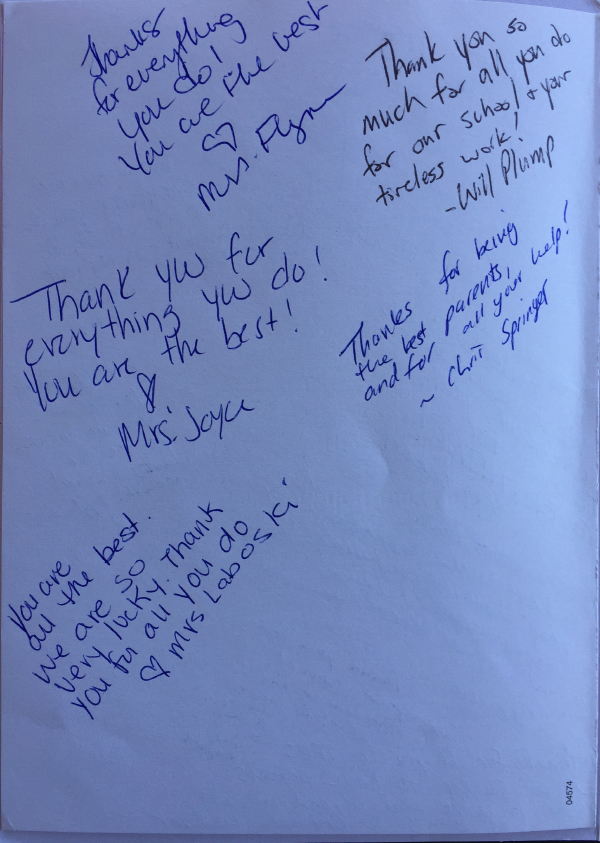 Thanks
for everything
you do!
You are the best
♡
Mrs. Flynn
Thank you so
much for all you do
for our school & your
tireless work!
-Will Plump
Thank you for
everything you do!
You are the best!
♡
Mrs. Joyce
Thanks for being
the best parents,
and for all your help!
~ Chris Springer
You are
all the best.
We are so
very lucky. Thank
you for all you do
♡ Mrs Laboski
04574